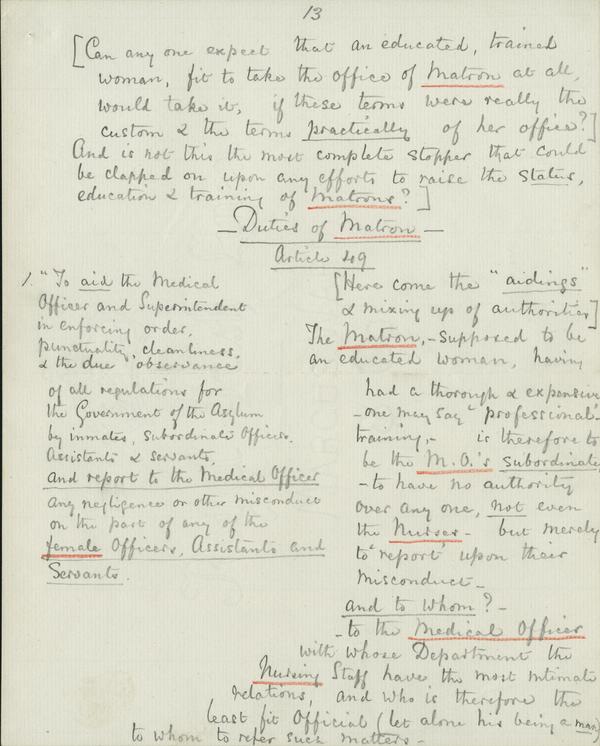 13
[Can any one expect that an educated, trained
woman, fit to take the office of Matron at all,
would take it, if these terms were really the
custom & the terms practically of her office?]
And is not this the most complete stopper that could
be clapped on upon any efforts to raise the status,
education & training of Matrons?]
— Duties of Matron —
Article 49
1. "To aid the Medical
Officer and Superintendent
in enforcing order,
punctuality, cleanliness,
& the due observance
of all regulations for
the Government of the Asylum
by inmates, subordinate Officers,
Assistants & servants,
and report to the Medical Officer
any negligence or other misconduct
on the part of any of the
female Officers, Assistants and
Servants.
[Here come the "aidings"
& mixing up of authorities]
The Matron, - supposed to be
an educated woman, having
had a thorough & expensive
- one may say "professional" -
training, - is therefore to
be the M.O.'s subordinate,
- to have no authority
over any one, not even
the Nurses - but merely
to "report" upon their
misconduct -
and to whom? -
- to the Medical Officer
with whose Department the
Nursing Staff have the most intimate
relations, and who is therefore the
least fit Official (let alone his being a man)
to whom to refer such matters -